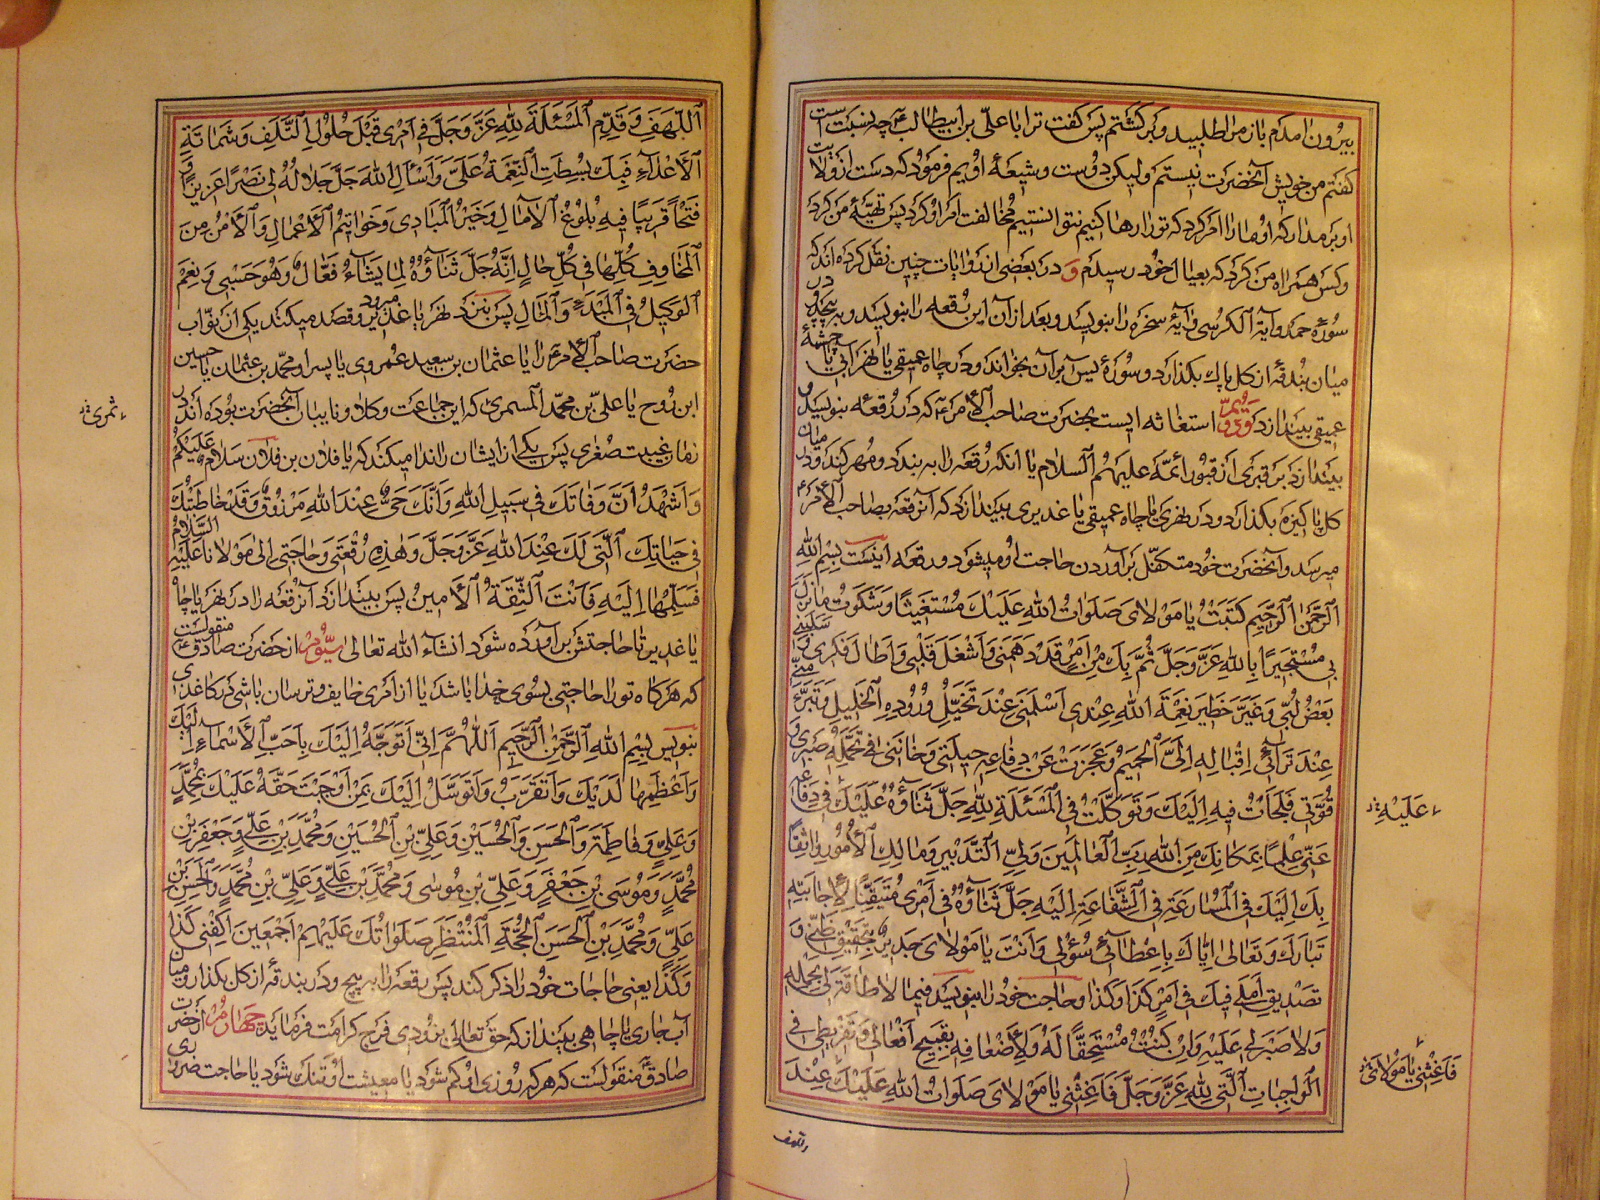 بیرون امدم باز مرا طلبید و برکشتم پس کفت ترا با علی بن ابیطالب ع چه نسبت است
کفتم من خویش آنحضرت نیستم ولیکن دوست و شیعهٔ اویم فرمود که دست از ولایت
او بر مدار که او ما را امر کرد که تو را رها کنیم نتوانستیم مخالفت امر او کرد پس تهیّهٔ من کرد
و کس همراه من کرد که بعیال خود رسیدم و در بعضی از روایات چنین نقل کرده اند که
سورهٔ حمد و آیة الکرسی و آیهٔ سخره را بنویسد و بعد از آن این رقعه را بنویسد و بپیچد و در
میان بندقه از کل پاک بکذارد و سورهٔ یس بر آن بخواند و در چاه عمیقی یا نهر آبی یا چشمهٔ
عمیقی بیندازد دویّم استغاثه ایست بحضرت صاحب الأمر ع که در رقعه بنویسد و
بیندازد بر قبری از قبور ائمّه علیهم السلام یا آنکه رقعه را به بندد و مهر کند و در میان
کل پاکیزه بکذارد و در نهری یا چاه عمیقی یا غدیری بیندازد که آنرقعه بصاحب الأمر ع
میرسد و آنحضرت خود متکفّل برآوردن حاجت او میشود و رقعه اینست بِسْمِ اللهِ
الرَّحْمٰنِ الرَّحِیمِ کَتَبْتُ یٰا مَوْلٰایَ صَلَوٰاتُ اللهِ عَلَیْكَ مُسْتَغِیثًا وَشَکَوْتُ مٰا نَزَلَ
بِی مُسْتَجِیرًا بِاللهِ عَزَّ وَجَلَّ ثُمَّ بِكَ مِنْ اَمْرٍ قَدْ دَهَمَنِی وَاَشْغَلَ قَلْبِی وَاَطٰالَ فِکْرِی وَ سَلَبَنِی
بَعْضَ لُبِّی وَغَیَّرَ خَطِیرَ نِعْمَةِ اللهِ عِنْدِی اَسْلَمَنِی عِنْدَ تَخَیُّلِ وُرُودِهِ الْخَلِیلُ وَتَبَرَّءَ مِنِّی
عِنْدَ تَرٰائِی اِقْبٰالِهِ اِلَیَّ الْحَمِیمُ وَعَجَزَتْ عَنْ دِفٰاعِهِ حِیلَتِی وَخٰانَنِی فِی تَحَمُّلِهِ صَبْرِی وَ
قُوَّتِی فَلَجَأْتُ فِیهِ اِلَیْكَ وَتَوَکَّلْتُ فِی الْمَسْئَلَةِ لِلهِ جَلَّ ثَنٰاؤُهُ عَلَیْكَ فِی دِفٰاعِهِ
عَنِّی عِلْمًا بِمَکٰانِكَ مِنَ اللهِ رَبِّ الْعٰالَمِینَ وَلِیِّ التَّدْبِیرِ وَمٰالِكِ الْاُمُورِ وٰاثِقًا
بِكَ اِلَیْكَ فِی الْمُسٰارَعَةِ فِی الشَّفٰاعَةِ اِلَیْهِ جَلَّ ثَنٰاؤُهُ فِی اَمْرِی مُتَیَقِّنًا لِاِجٰابَتِهِ
تَبٰارَكَ وَتَعٰالٰی اِیّٰاكَ بِاِعْطٰائِی سُؤْلِی وَاَنْتَ یٰا مَوْلٰایَ جَدِیرٌ بِتَحْقِیقِ ظَنِّی وَ
تَصْدِیقِ اَمَلِی فِیكَ فِی اَمْرِ کَذٰا وَکَذٰا وحاجت خود را بنویسد فِیمٰا لاٰ طٰاقَةَ لِی بِحَمْلِهِ
وَلاٰ صَبْرَ لِی عَلَیْهِ وَاِنْ کُنْتُ مُسْتَحِقًّا لَهُ وَلِاَضْعٰافِهِ بِقَبِیحِ اَفْعٰالِی وَتَفْرِیطِی فِی
الْوٰاجِبٰاتِ الَّتِی لِلهِ عَزَّ وَجَلَّ فَاَغِثْنِی یٰا مَوْلٰایَ صَلَوٰاتُ اللهِ عَلَیْكَ عِنْدَ
عَلَیْهِ
فَاَغِثْنِی یٰا مَوْلٰایَ
اللَّهَفِ وَقَدِّمِ الْمَسْئَلَةَ لِلهِ عَزَّ وَجَلَّ فِی اَمْرِی قَبْلَ حُلُولِ التَّلَفِ وَشَمٰاتَةِ
الْاَعْدٰاءِ فَبِكَ بُسِطَتِ النِّعْمَةُ عَلَیَّ وَاَسْأَلِ اللهَ جَلَّ جَلاٰلُهُ لِی نَصْرًا عَزِیزًا وَ
فَتْحًا قَرِیبًا فِیهِ بُلُوغُ الْاٰمٰالِ وَخَیْرُ الْمَبٰادِی وَخَوٰاتِیمُ الْاَعْمٰالِ وَالْاَمْنُ مِنَ
الْمَخٰاوِفِ کُلِّهٰا فِی کُلِّ حٰالٍ اِنَّهُ جَلَّ ثَنٰاؤُهُ لِمٰا یَشٰاءُ فَعّٰالٌ وَهُوَ حَسْبِی وَنِعْمَ
الْوَکِیلُ فِی الْمَبْدَءِ وَالْمَآلِ پس بنزد نهر یا غدیر میرود و قصد میکند یکی از نوّاب
حضرت صاحب الأمر ع را یا عثمان بن سعید عمروی یا پسر او محمّد بن عثمان یا حسین
ابن روح یا علیّ بن محمّد السمری که این جماعت وکلا و نایبان آنحضرت بوده اند در
زمان غیبت صغری پس یکی از ایشان را ندا میکند که یا فلان بن فلان سَلاٰمٌ عَلَیْکُمْ
وَاَشْهَدُ اَنَّ وَفٰاتَكَ فِی سَبِیلِ اللهِ وَاَنَّكَ حَیٌّ عِنْدَ اللهِ مَرْزُوقٌ وَقَدْ خٰاطَبْتُكَ
فِی حَیٰاتِكَ الَّتِی لَكَ عِنْدَ اللهِ عَزَّ وَجَلَّ وَهٰذِهِ رُقْعَتِی وَحٰاجَتِی اِلٰی مَوْلاٰنٰا عَلَیْهِ السَّلاٰمُ
فَسَلِّمْهٰا اِلَیْهِ فَاَنْتَ الثِّقَةُ الْاَمِینُ پس بیندازد آنرقعه را در نهر یا چاه
یا غدیر تا حاجتش برآورده شود انشاء الله تعالی سیّوم از حضرت صادق ع منقولست
که هر کاه تو را حاجتی بسوی خدا باشد یا از امری خایف و ترسان باشی در کاغذی
بنویس بِسْمِ اللهِ الرَّحْمٰنِ الرَّحِیمِ اَللّٰهُمَّ اِنِّی اَتَوَجَّهُ اِلَیْكَ بِاَحَبِّ الْاَسْمٰاءِ اِلَیْكَ
وَاَعْظَمِهٰا لَدَیْكَ وَاَتَقَرَّبُ وَاَتَوَسَّلُ اِلَیْكَ بِمَنْ اَوْجَبْتَ حَقَّهُ عَلَیْكَ بِمُحَمَّدٍ
وَعَلِیٍّ وَفٰاطِمَةَ وَالْحَسَنِ وَالْحُسَیْنِ وَعَلِیِّ بْنِ الْحُسَیْنِ وَمُحَمَّدِ بْنِ عَلِیٍّ وَجَعْفَرِ بْنِ
مُحَمَّدٍ وَمُوسَی بْنِ جَعْفَرٍ وَعَلِیِّ بْنِ مُوسٰی وَمُحَمَّدِ بْنِ عَلِیٍّ وَعَلِیِّ بْنِ مُحَمَّدٍ وَالْحَسَنِ بْنِ
عَلِیٍّ وَمُحَمَّدِ بْنِ الْحَسَنِ الْحُجَّةِ الْمُنْتَظَرِ صَلَوٰاتُكَ عَلَیْهِمْ اَجْمَعِینَ اِکْفِنِی کَذٰا
وَکَذٰا یعنی حاجات خود را ذکر کند پس رقعه را بپیچ و در بندقه از کل بکذار و میان
آب جاری یا چاهی بینداز که حق تعالی بزودی فرج کرامت فرماید چهارم از حضرت
صادق ع منقولست که هر که روزی او کم شود یا معیشت او تنک شود یا حاجت ضروری
ثمری